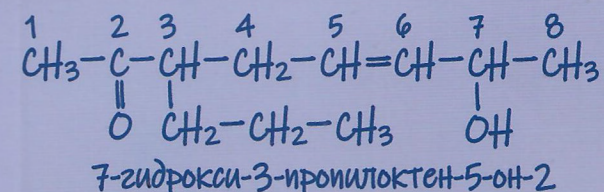 1 2 3 4 5 6 7 8
CH3-C-CH-CH2-CH=CH-CH-CH3
O CH2-CH2-CH3 OH
7-гидрокси-3-пропилоктен-5-он-2